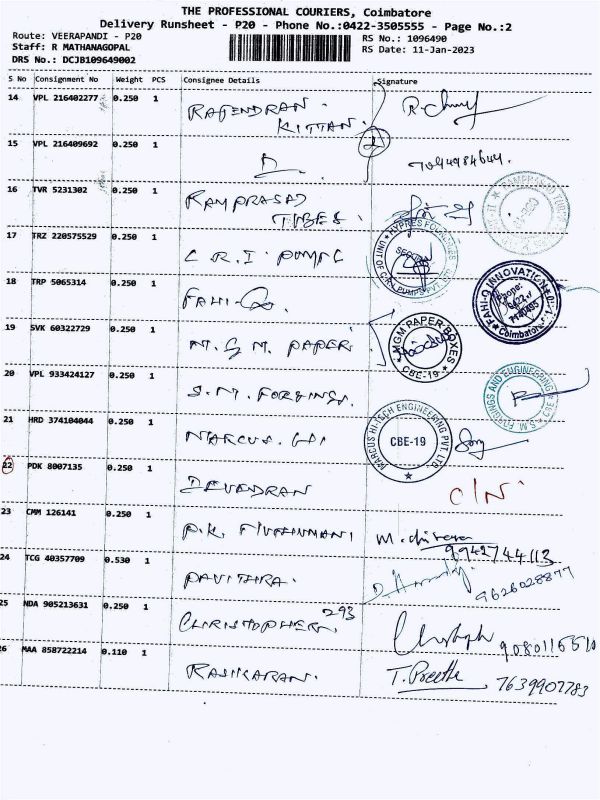 THE PROFESSIONAL COURIERS, Coimbatore
Delivery Runsheet - P20 - Phone No.:0422-3505555 - Page No.:2
Route: VEERAPANDI - P20
RS No.: 1096490
Staff: R MATHANAGOPAL
RS Date: 11-Jan-2023
DRS No.: DCJB109649002
S No Consignment No Weight PCS Consignee Details Signature
14 VPL 216402277 0.250 1 RAJENDRAN.
KITTAN.
15 VPL 216409692 0.250 1 7094984644.
16 TVR 5231302 0.250 1 RAMPRASAD
TUBES.
17 TRZ 220575529 0.250 1 C R.I PUMPS
UNIT OF C.R.I. PUMPS PVT. LTD
18 TRP 5065314 0.250 1 FAHI-Q
FAHI-Q INNOVATION
Phone:
0422
Coimbatore
19 SVK 60322729 0.250 1 M.G.M. PAPER
MGM PAPER BOXES
CBE-19
20 VPL 933424127 0.250 1 S.M. FORGINGS.
S.M. FORGINGS AND ENGINEERING
21 HRD 374104044 0.250 1 MARCUS.
MARCUS HI-TECH ENGINEERING PVT. LTD
CBE-19
22 PDK 8007135 0.250 1 DEVENDRAN C/N
23 CMM 126141 0.250 1 P.K.
9942744113
24 TCG 40357709 0.530 1 PAVITHRA. 9626028877
25 NDA 905213631 0.250 1 CHRISTOPHER. 293
26 MAA 858722214 0.110 1 T. Preetha 7639907783